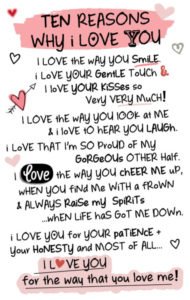 TEN REASONS
WHY i LOVE YOU
I LOVE the WAY YOU SMiLE
i LOVE YOUR GentLE ToUCH &
I LOVE YOUR KiSSes so
Very VERY MuCH!
I LOVE the WAY YOU LOOK at ME
& i LOVE to HEAR YOU LAUGH.
i LOVE THAT I'm SO PrOUD OF MY
GoRGeOUS OTHER HaLF.
I Love the WAY YOU CHEER ME UP,
WHEN YOU fiNd ME WitH A fROWN
& ALWAYS RaiSe MY SPiRiTS
...WHEN LiFE HaS GoT ME DOWn.
i LOVE YOU for YOUR PaTiENCE +
YOUR HoNESTY and MOST OF ALL...
I LOVE YOU
for the way that you love me!